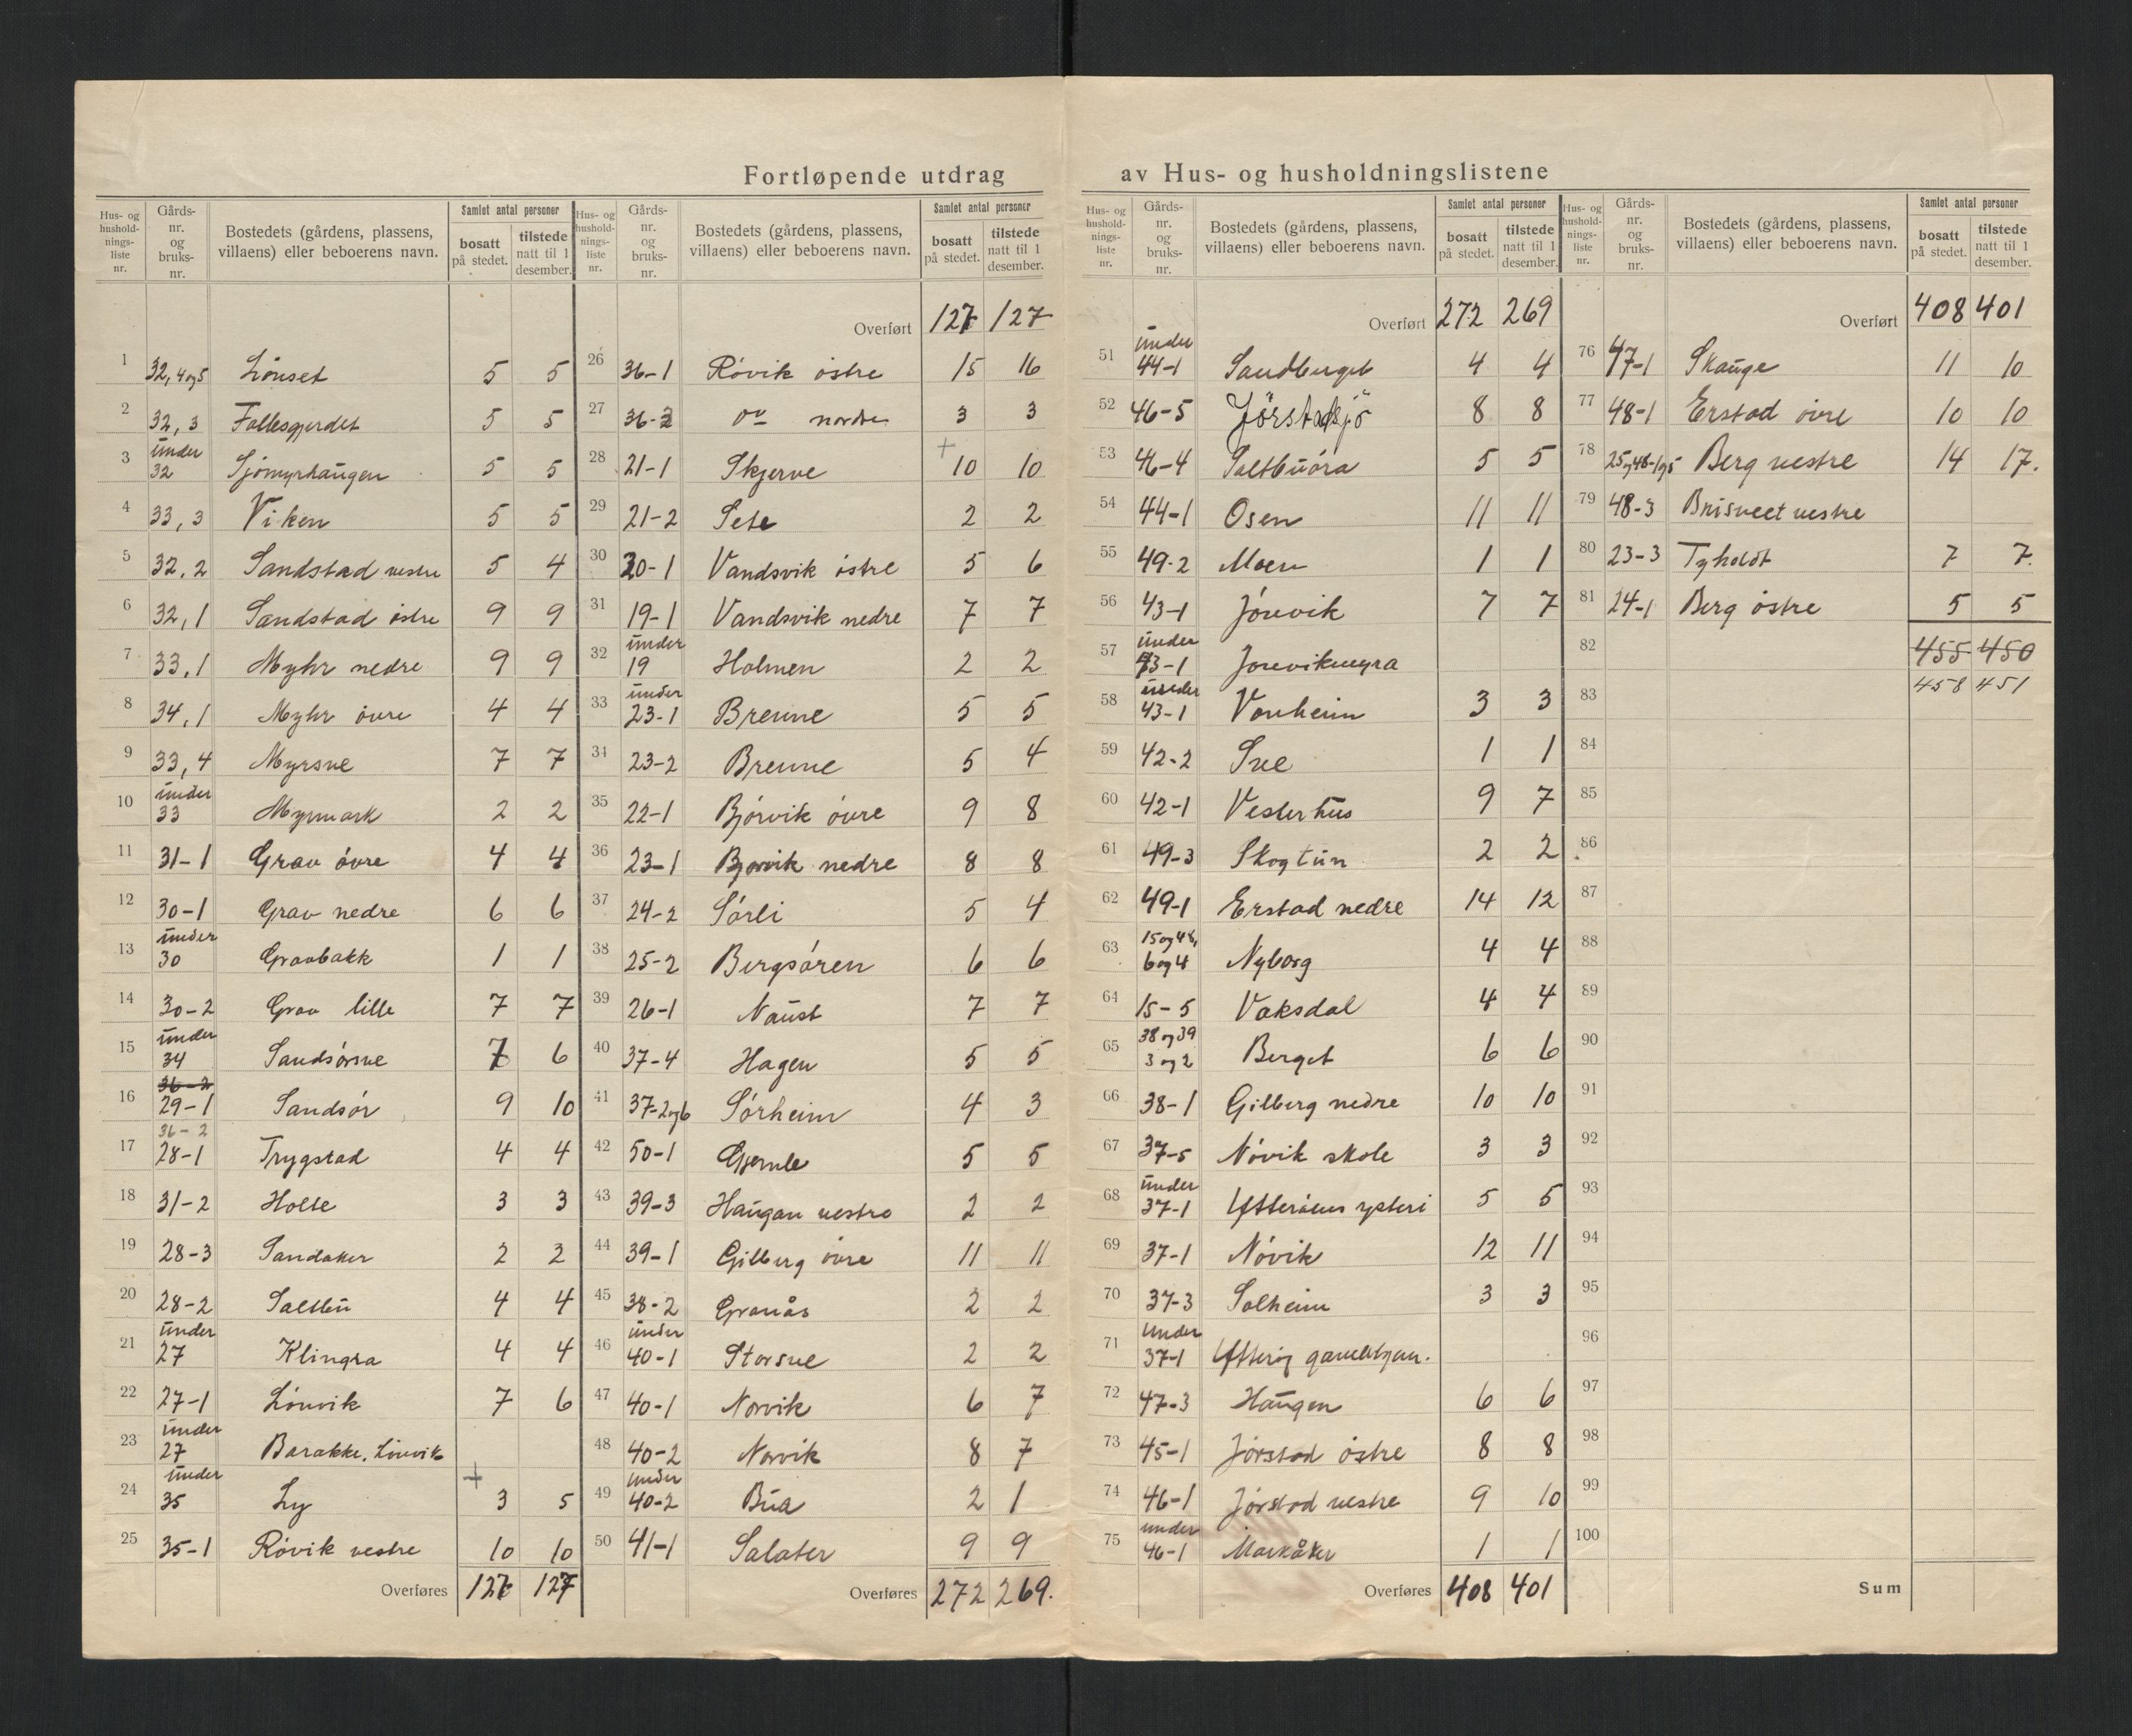 Fortløpende utdrag av Hus- og husholdningslistene
Hus- og hushold-nings-liste nr. Gårds-nr. og bruks-nr. Bostedets (gårdens, plassens, villaens) eller beboerens navn. Samlet antal personer bosatt på stedet. tilstede natt til 1 desember.
1 32, 4 og 5 Lönset 5 5
2 32, 3 Fallesgjerdet 5 5
3 under 32 Sjömyrhaugen 5 5
4 33, 3 Viken 5 5
5 32, 2 Sandstad vestre 5 4
6 32, 1 Sandstad östre 9 9
7 33, 1 Myhr nedre 9 9
8 34, 1 Myhr övre 4 4
9 33, 4 Myrsve 7 7
10 under 33 Myrmark 2 2
11 31-1 Grav övre 4 4
12 30-1 Grav nedre 6 6
13 under 30 Gravbakk 1 1
14 30-2 Grav lille 7 7
15 under 34 Sandsörsve 7 6
16 36-2 29-1 Sandsör 9 10
17 36-2 28-1 Trygstad 4 4
18 31-2 Holte 3 3
19 28-3 Sandaker 2 2
20 28-2 Saltbu 4 4
21 under 27 Klingra 4 4
22 27-1 Lönvik 7 6
23 under 27 Barakke, Lönvik
24 under 35 Ly + 3 5
25 35-1 Rövik vestre 10 10
Overføres 127 127
Hus- og hushold-nings-liste nr. Gårds-nr. og bruks-nr. Bostedets (gårdens, plassens, villaens) eller beboerens navn. Samlet antal personer bosatt på stedet. tilstede natt til 1 desember.
Overført 127 127
26 36-1 Rövik östre 15 16
27 36-2 do nordre 3 3
28 21-1 Skjerve + 10 10
29 21-2 Sete 2 2
30 20-1 Vandsvik östre 5 6
31 19-1 Vandsvik nedre 7 7
32 under 19 Holmen 2 2
33 under 23-1 Brenne 5 5
34 23-2 Brenne 5 4
35 22-1 Bjørvik övre 9 8
36 23-1 Bjørvik nedre 8 8
37 24-2 Sörli 5 4
38 25-2 Bergsören 6 6
39 26-1 Naust 7 7
40 37-4 Hagen 5 5
41 37-2og6 Sörheim 4 3
42 50-1 Gjemle 5 5
43 39-3 Haugan vestre 2 2
44 39-1 Gilberg övre 11 11
45 38-2 Granås 2 2
46 under 40-1 Storsve 2 2
47 40-1 Norvik 6 7
48 40-2 Norvik 8 7
49 under 40-2 Bua 2 1
50 41-1 Salater 9 9
Overføres 272 269.
Hus- og hushold-nings-liste nr. Gårds-nr. og bruks-nr. Bostedets (gårdens, plassens, villaens) eller beboerens navn. Samlet antal personer bosatt på stedet. tilstede natt til 1 desember.
Overført 272 269
51 under 44-1 Sandberget 4 4
52 46-5 Jörstadsjö 8 8
53 46-4 Saltbuöra 5 5
54 44-1 Osen 11 11
55 49-2 Moen 1 1
56 43-1 Jörevik 7 7
57 under 43-1 Jørevikmyra
58 under 43-1 Vonheim 3 3
59 42-2 Sve 1 1
60 42-1 Vesterhus 9 7
61 49-3 Skogtun 2 2
62 49-1 Erstad nedre 14 12
63 15og48, 6og4 Nyborg 4 4
64 15-5 Vaksdal 4 4
65 38og39 3og2 Berget 6 6
66 38-1 Gilberg nedre 10 10
67 37-5 Növik skole 3 3
68 under 37-1 Ytteröens ysteri 5 5
69 37-1 Növik 12 11
70 37-3 Solheim 3 3
71 under 37-1 Ytteröy gamlehjem.
72 47-3 Haugen 6 6
73 45-1 Jörstad östre 8 8
74 46-1 Jörstad vestre 9 10
75 under 46-1 Markåker 1 1
Overføres 408 401
Hus- og hushold-nings-liste nr. Gårds-nr. og bruks-nr. Bostedets (gårdens, plassens, villaens) eller beboerens navn. Samlet antal personer bosatt på stedet. tilstede natt til 1 desember.
Overført 408 401
76 47-1 Skauge 11 10
77 48-1 Erstad övre 10 10
78 25og48-1og5 Berg vestre 14 17.
79 48-3 vestre
80 23-3 Tyholdt 7 7.
81 24-1 Berg östre 5 5
82 455 450
83 458 451
84
85
86
87
88
89
90
91
92
93
94
95
96
97
98
99
100
Sum